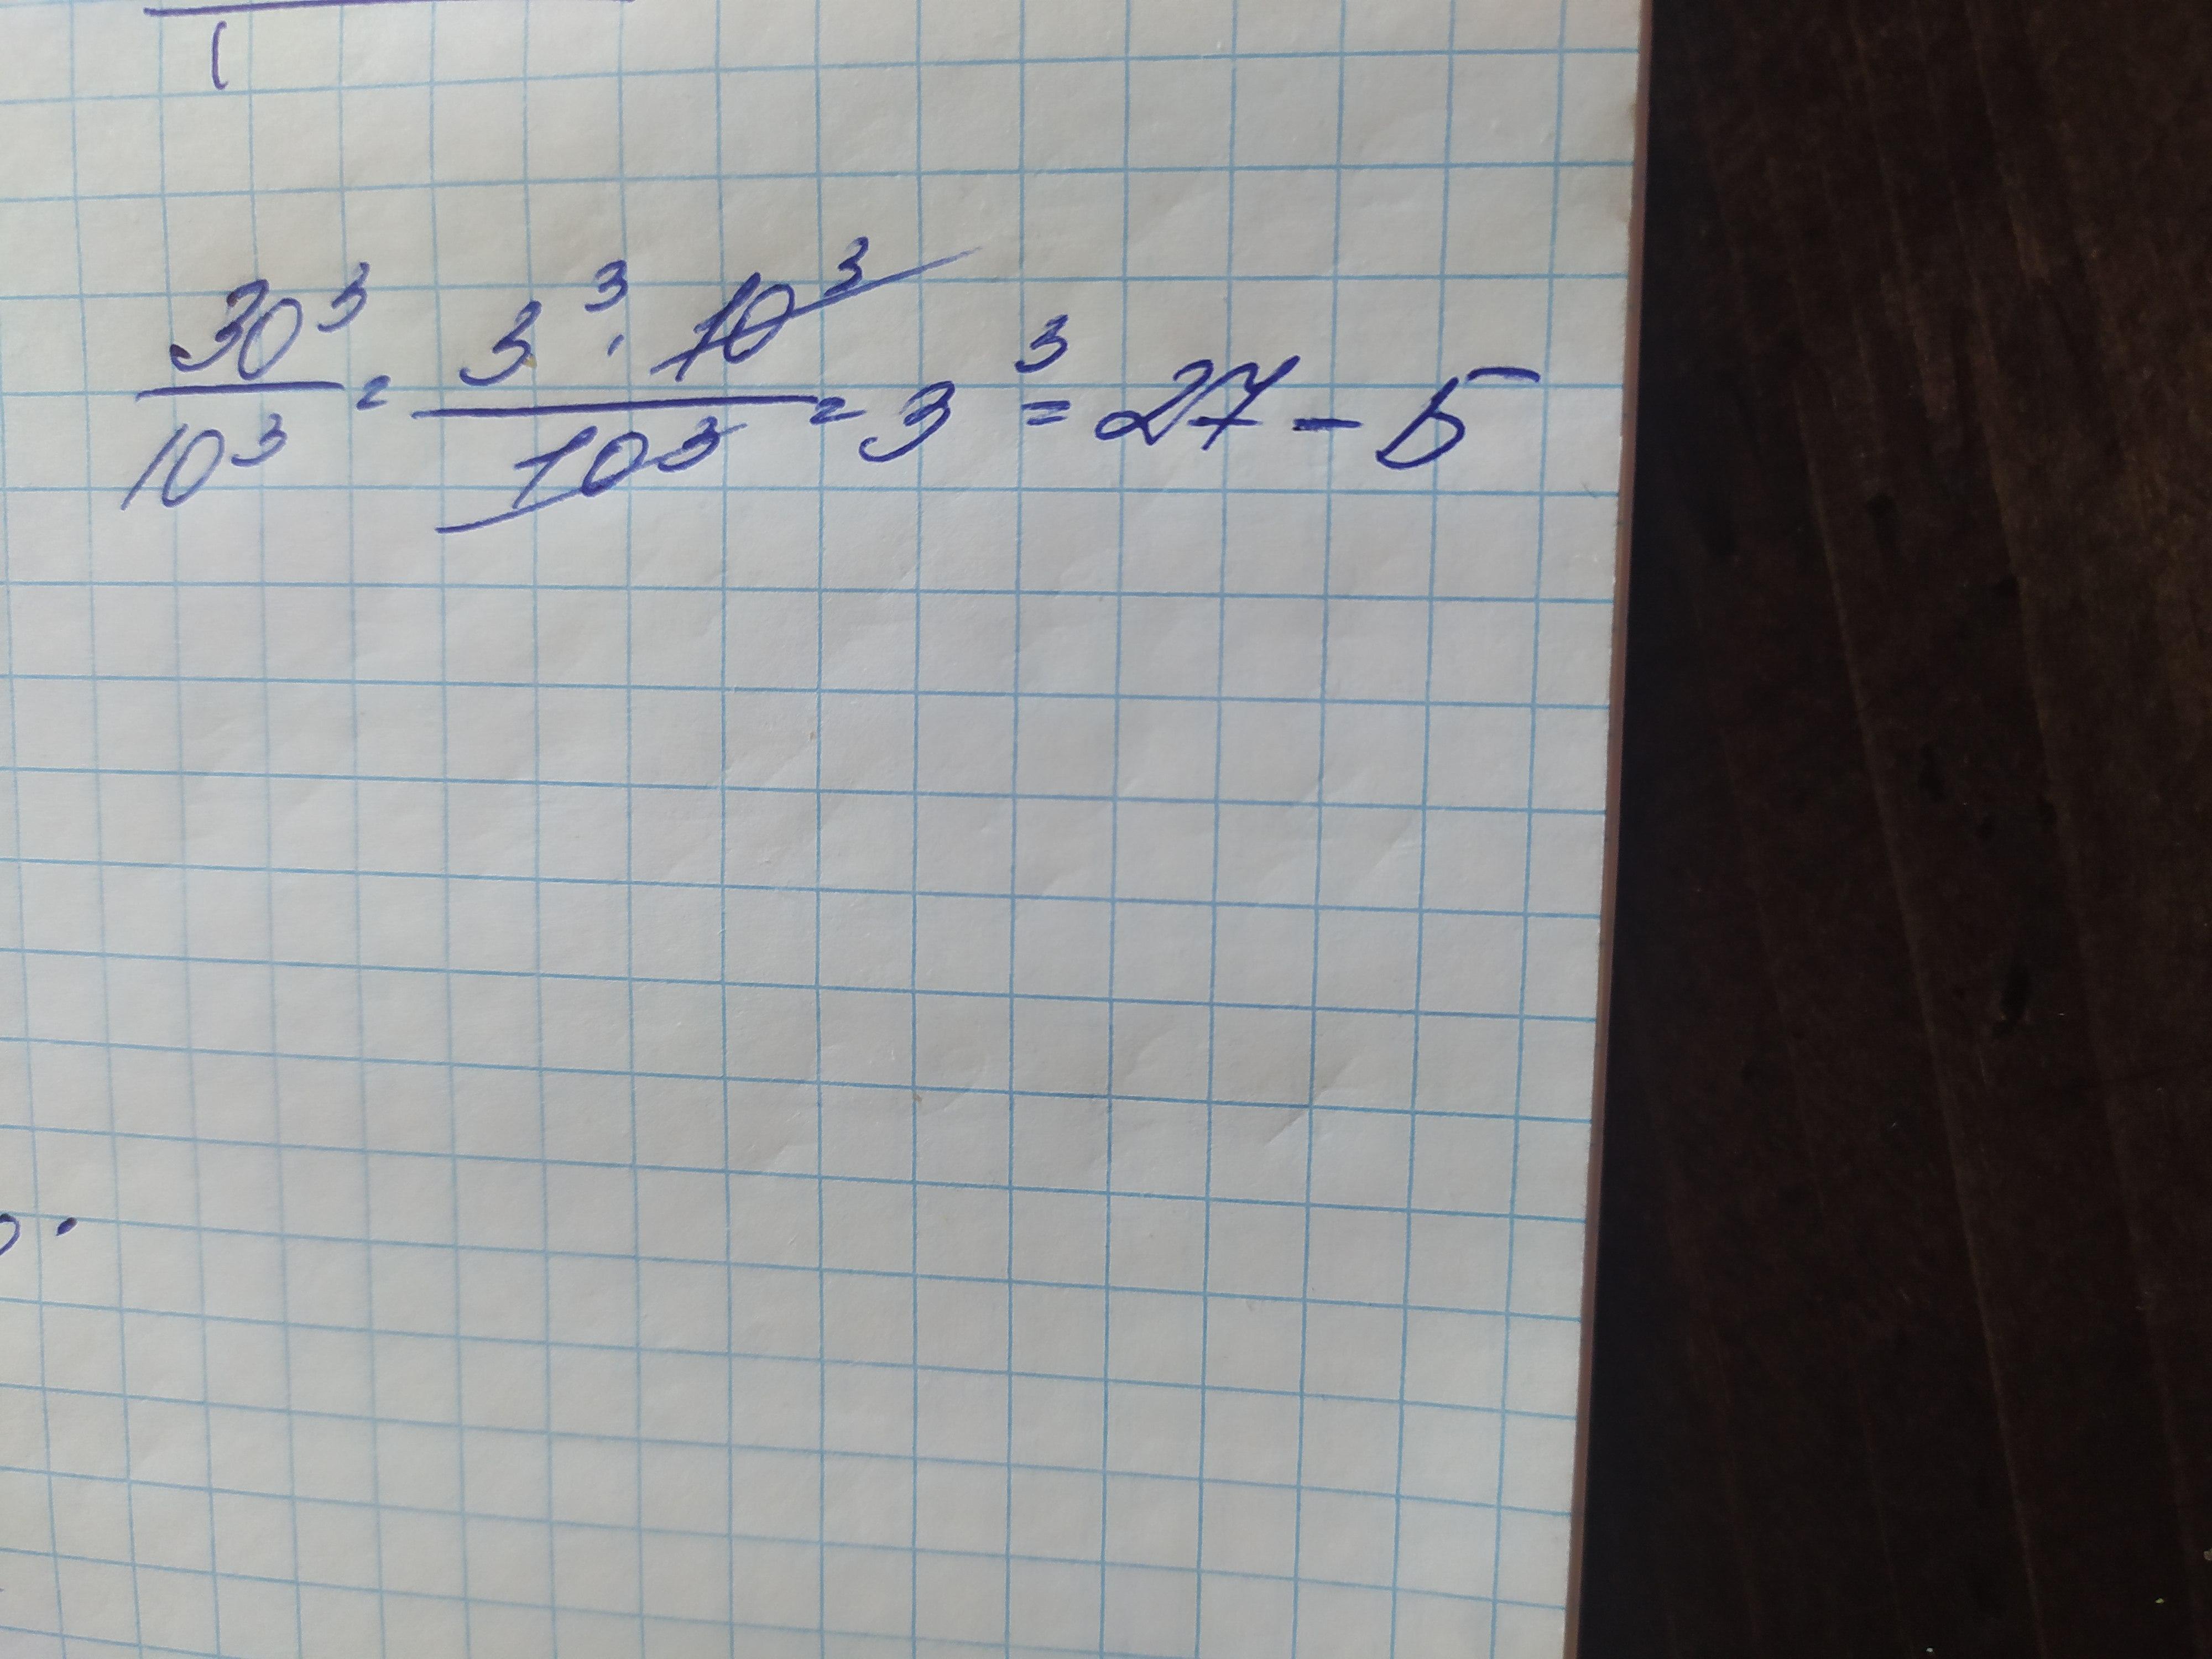 30³/10³ = 3³ · 10³/10³ = 3³ = 27 - Б